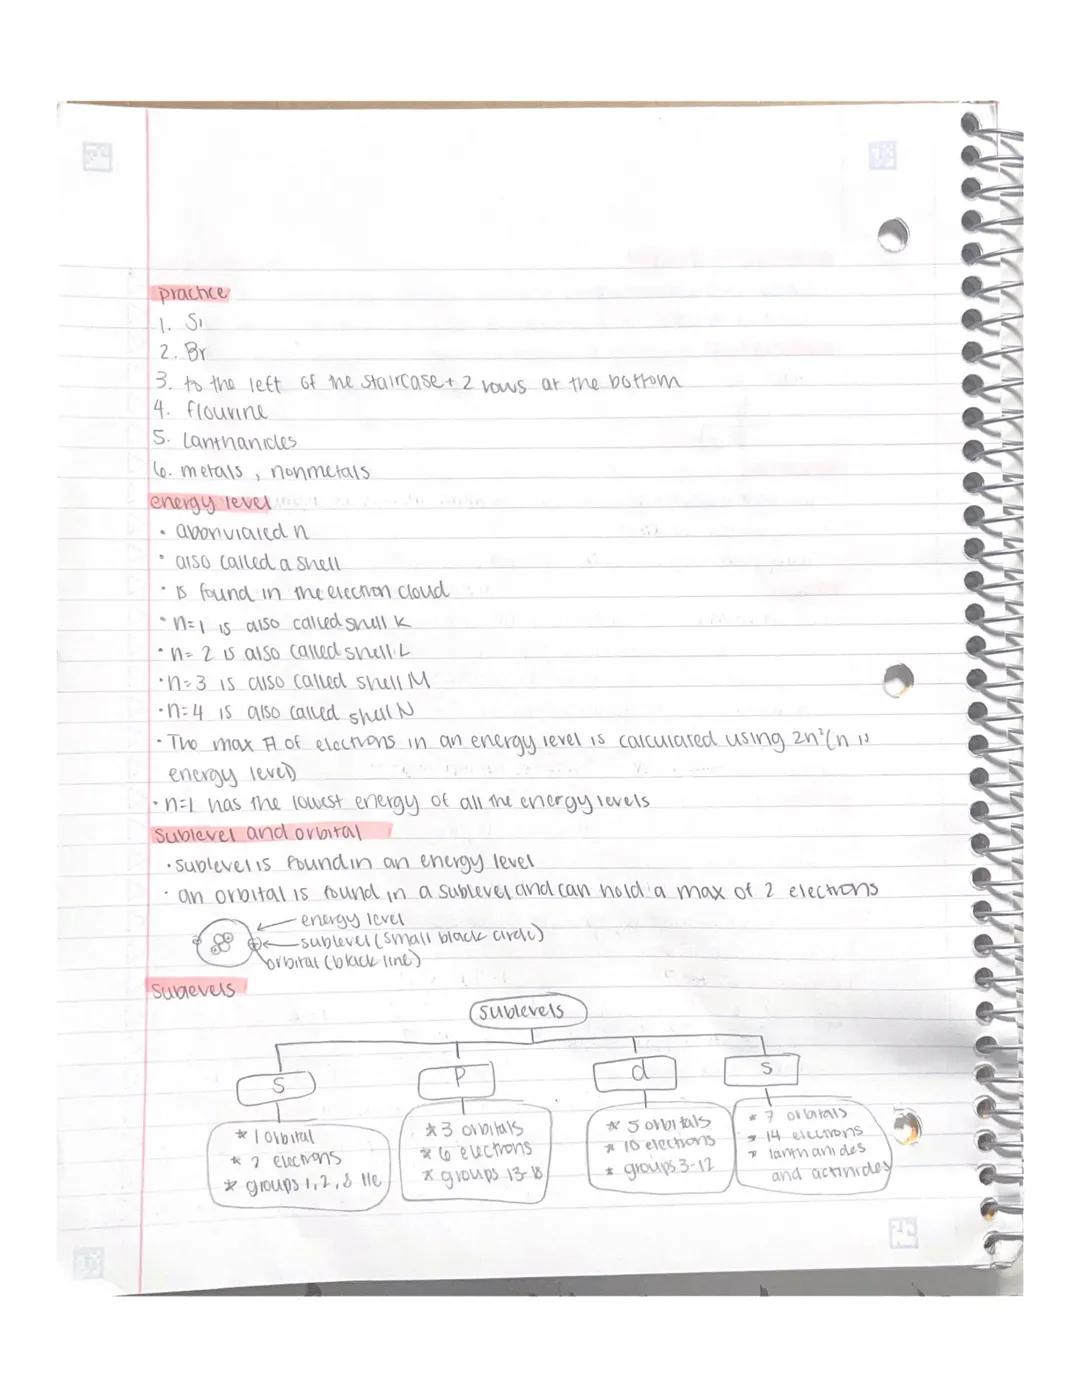 practice
1. Si
2. Br
3. to the left of the staircase + 2 rows at the bottom
4. flourine
5. Lanthanides
6. metals, nonmetals
energy level
• abbrviated n
• also called a shell
• is found in the electron cloud
• n=1 is also called shell K
• n=2 is also called shell L
• n=3 is also called shell M
• n=4 is also called shell N
• The max # of electrons in an energy level is calculated using 2n² (n is
energy level)
• n=1 has the lowest energy of all the energy levels
Sublevel and orbital
• sublevel is found in an energy level
• an orbital is found in a sublevel and can hold a max of 2 electrons
energy level
sublevel (small black circle)
orbital (black line)
Sublevels
sublevels
S P d s
* 1 orbital * 3 orbitals * 5 orbitals * 7 orbitals
* 2 electrons * 6 electrons * 10 electrons * 14 electrons
* groups 1, 2, & He * groups 13-18 * groups 3-12 * lanthanides
and actinides